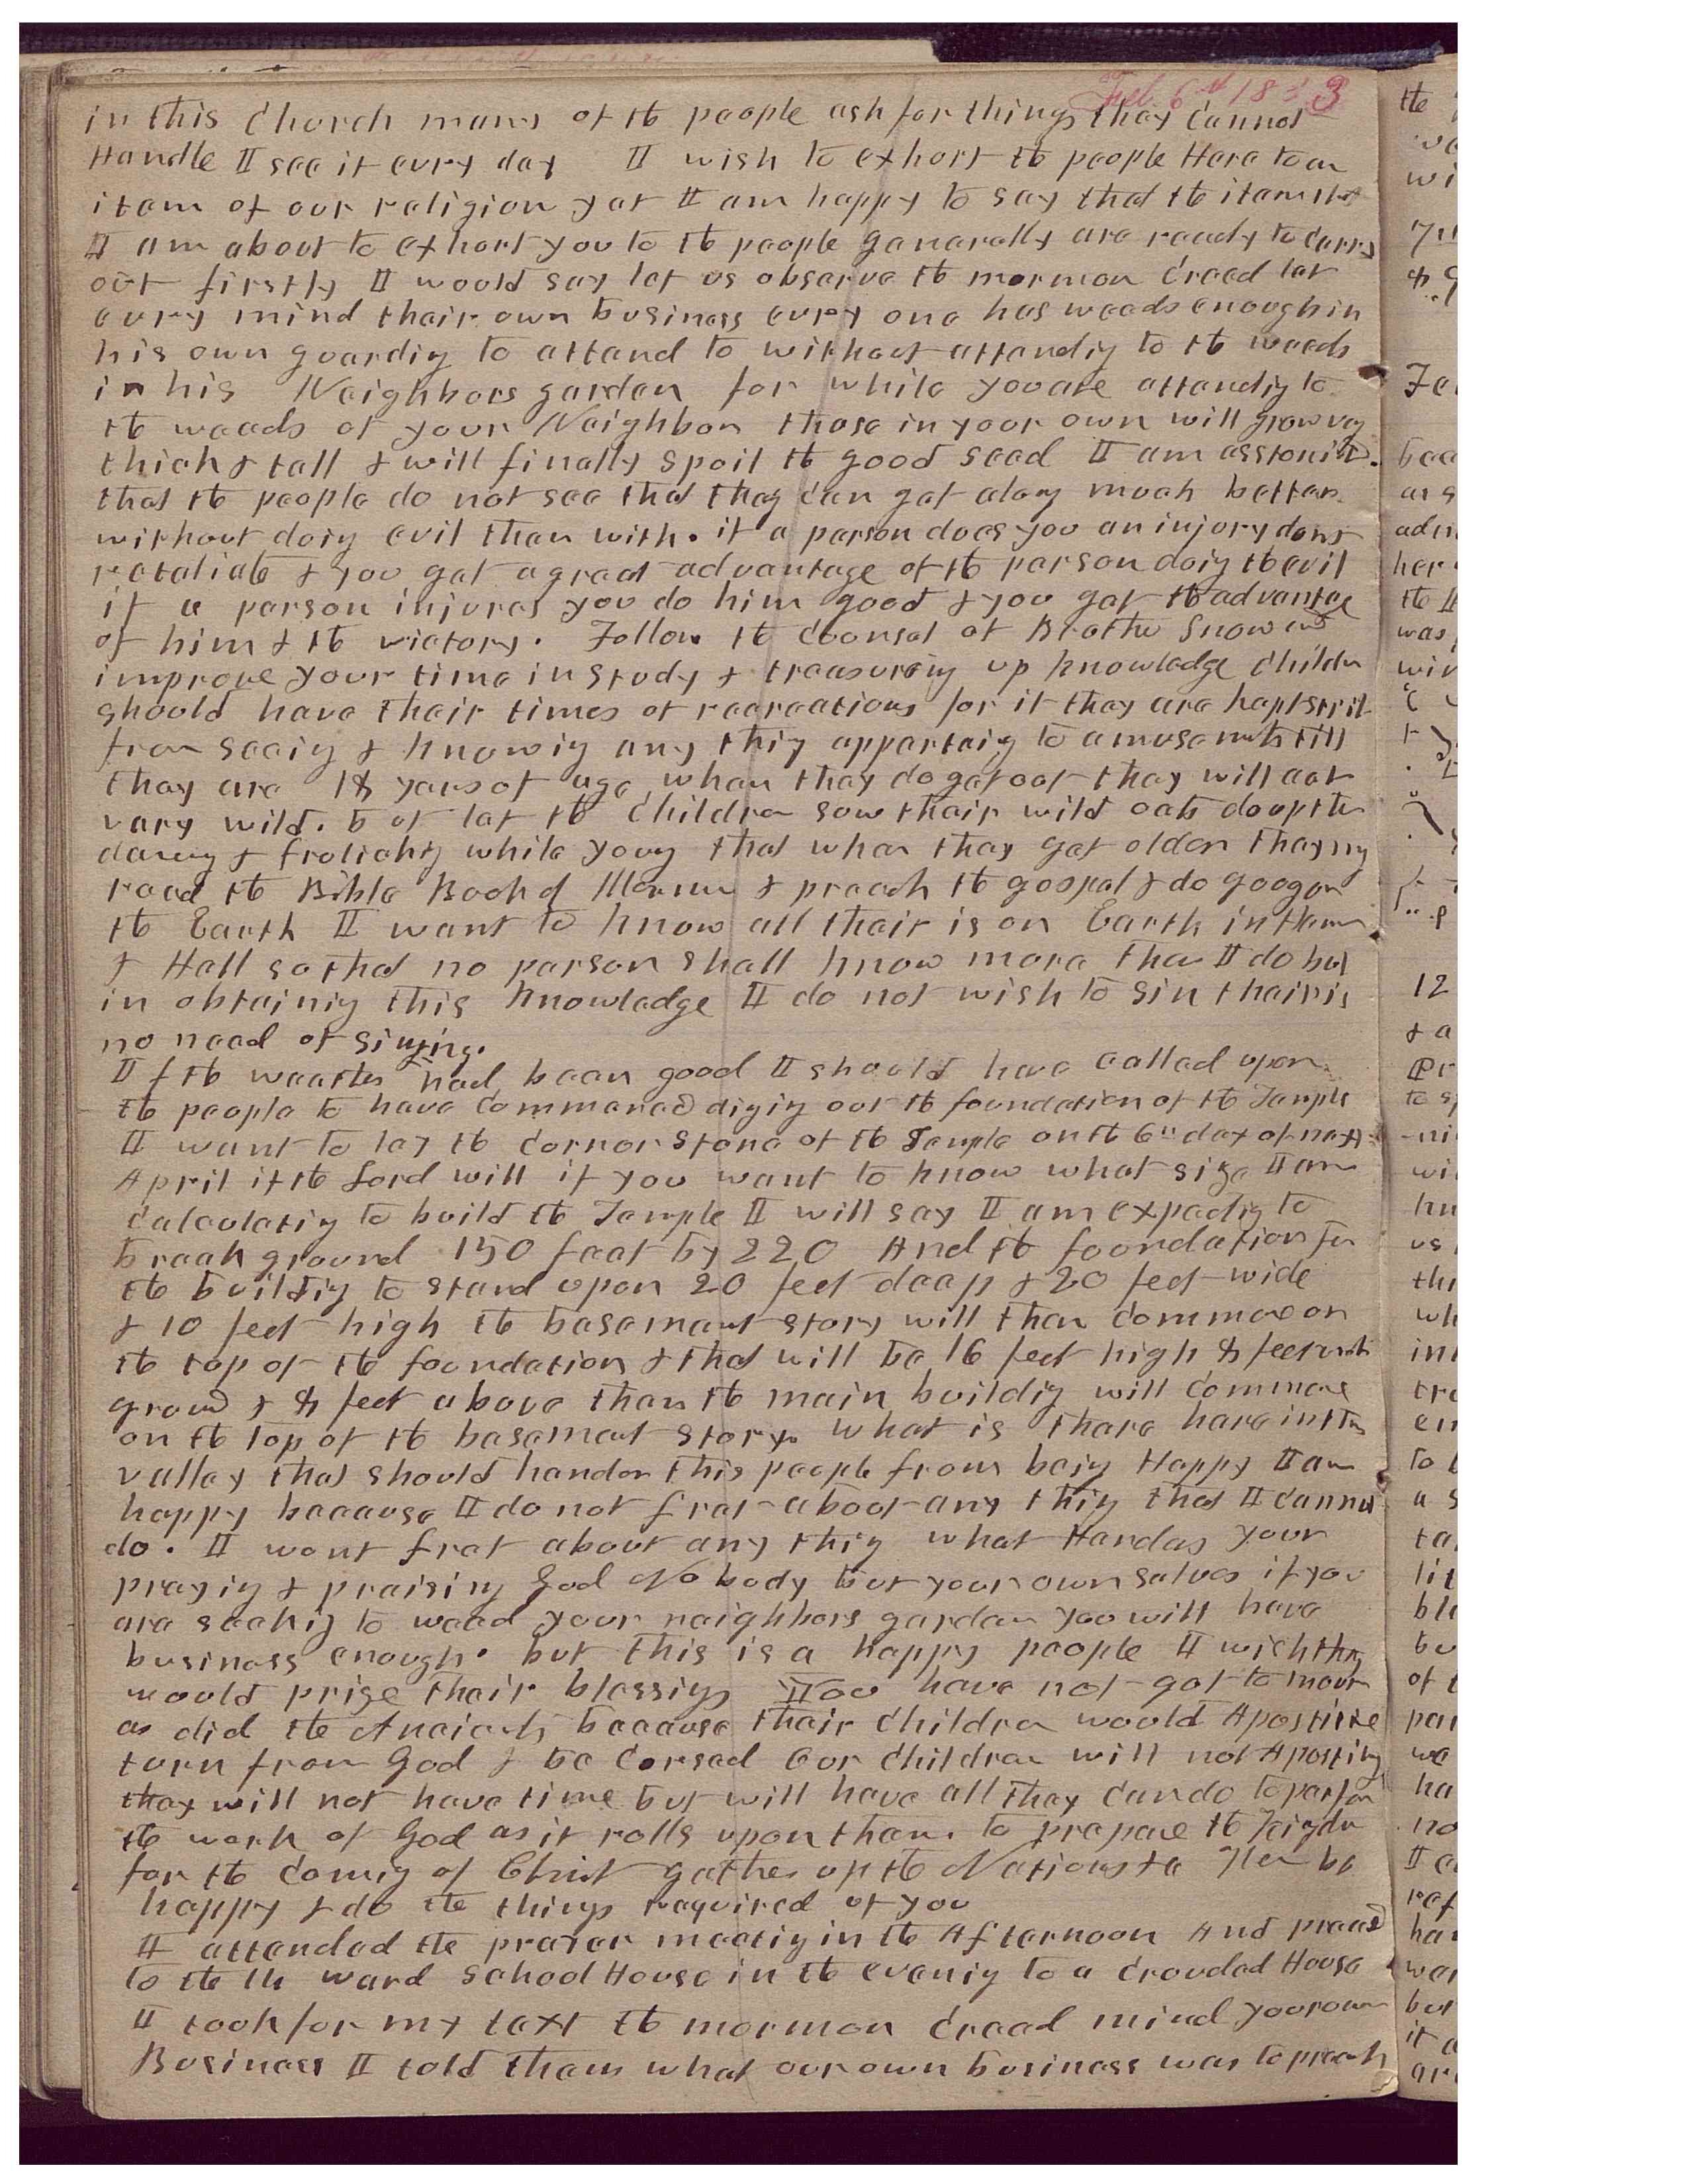 Feb 6th 1853
in this Church many of the people ask for things they cannot
Handle I see it evry day I wish to exhort the people Here to an
item of our religion yet I am happy to say that the item that
I am about to exhort you to the people generally are ready to carry
out firstly I would say let us observe the mormon creed let
evry mind their own business evry one has weeds enough in
his own guardig to attend to without attendig to the weeds
in his Neighbors garden for while you are attendig to
the weeds of your Neighbor those in your own will grow vey
thick & tall & will finally spoil the good seed I am asstonishd
that the people do not see that they can get along much better
without doig evil than with. if a person does you an injury dont
retaliate & you get a great advantage of the person doig the evil
if a person injures you do him good & you get the advantage
of him & the victory. Follow the counsel of Brother Snow and
improve your time in study & treasureing up knowledge childn
should have their times of recreations for if they are kept strit
from seeig & knowig any thig appertaig to amusements till
they are 18 years of age when they do get out they will act
very wild. but let the children sow their wild oats
dancing & frolickig while young that when they get older they may
read the Bible Book of Mormon & preach the gospel & do good on
the Earth I want to know all their is on Earth in Heaven
& Hell so that no person shall know more than I do but
in obtainig this knowledge I do not wish to sin their is
no need of sinning.
If the weather had been good I should have called upon
the people to have commenced digig out the foundation of the Temple
I want to lay the corner stone of the Temple on the 6" day of next
April if the Lord will if you want to know what size I am
calculatig to build the Temple I will say I am expectig to
break ground 150 feet by 220 And the foundation for
the buildig to stand upon 20 feet deep & 20 feet wide
& 10 feet high the basement story will then commence on
the top of the foundation & that will be 16 feet high 8 feet under
ground & 8 feet above then the main buildig will commence
on the top of the basement story. what is there here in this
valley that should hender this people from beig Happy I am
happy because I do not fret about any thig that I cannot
do. I wont fret about any thig what Henders your
prayig & praising God No body but your own selves if you
are seekig to weed your neighbors garden you will have
business enough. but this is a happy people I wish they
would prize their blessigs You have not got to mourn
as did the Ancients because their children would Apostitize
turn from God & be cursed Our children will not Apostitize
they will not have time but will have all they can do to perform
the work of God as it rolls upon them. to prepare the Kingdom
for the comig of Christ gather up the Nations &c Then be
happy & do the things required of you
I attended the prayer meetig in the Afternoon And preachd
to the 14 ward School House in the evenig to a crouded House
I took for my text the mormon creed mind your own
Business I told them what our own business was to preach